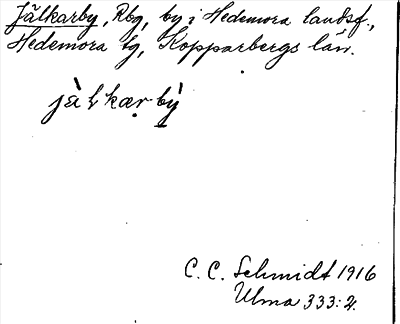 Jälkarby, Rbg, by i Hedemora landsf.,
Hedemora tg, Kopparbergs län.
jàɫkær bỳ
C. C. Schmidt 1916
Ulma 333:2.